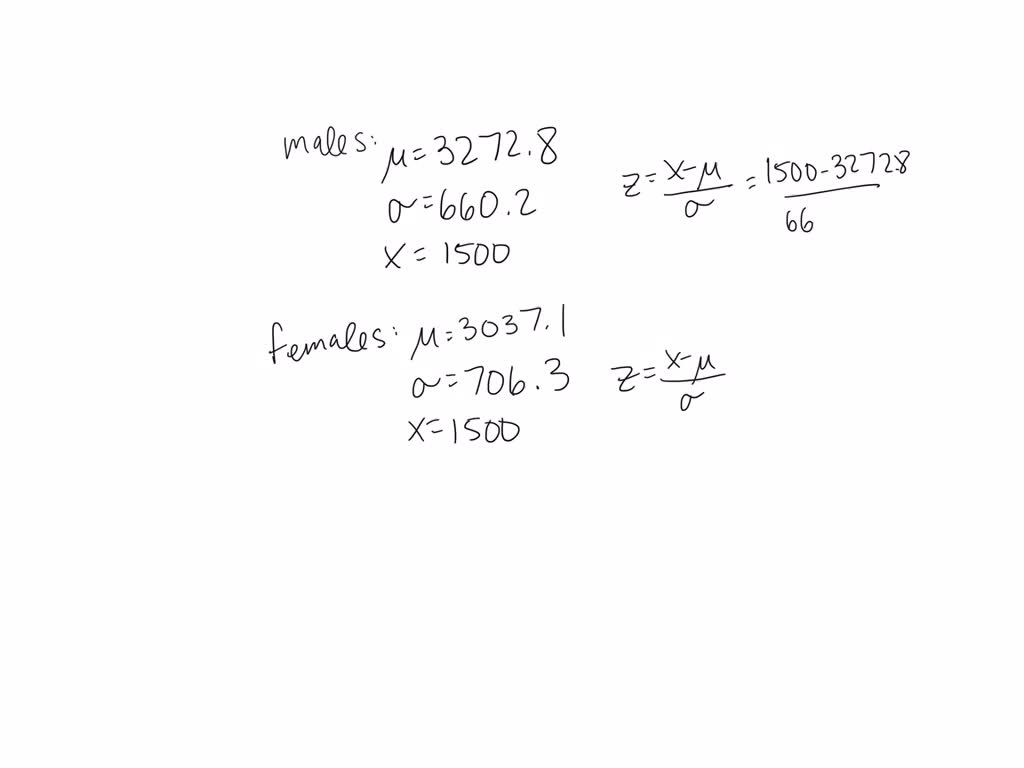 males: μ=3272.8
σ=660.2
x=1500
z=x-μ/σ=1500-3272.8/66
females: μ=3037.1
σ=706.3
x=1500
z=x-μ/σ